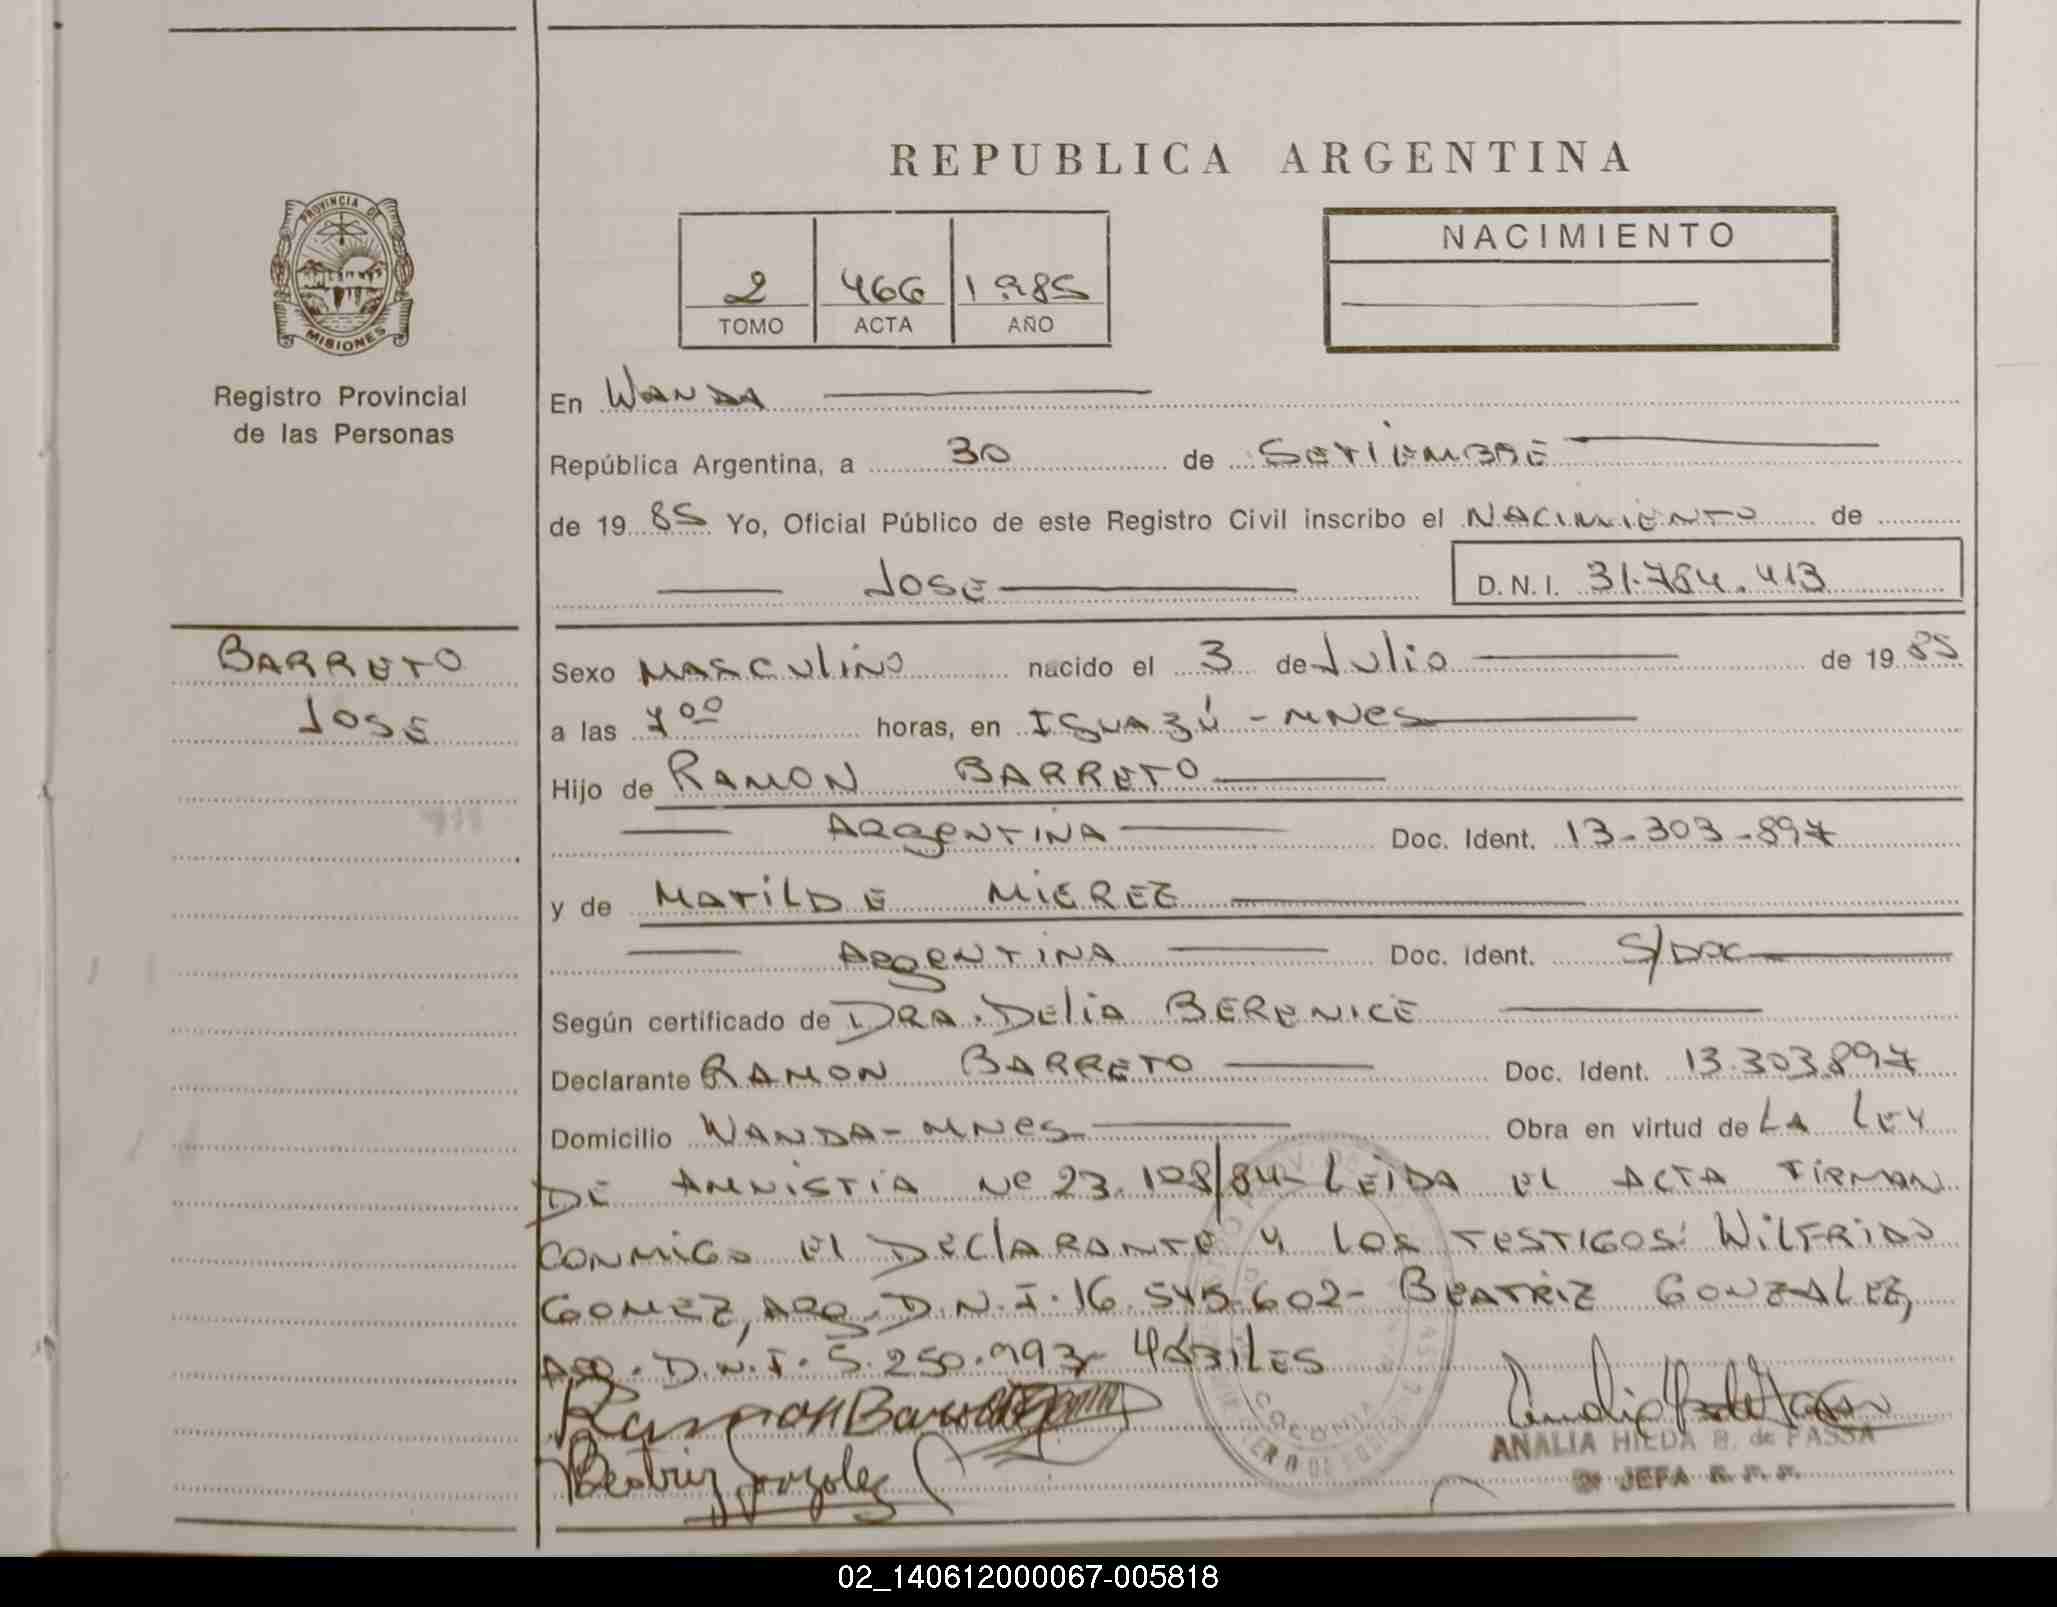 REPUBLICA ARGENTINA
PROVINCIA DE
MISIONES
Registro Provincial
de las Personas
2 466 1985
TOMO ACTA AÑO
NACIMIENTO
En WANDA
República Argentina, a 30 de SETIEMBRE
de 1985 Yo, Oficial Público de este Registro Civil inscribo el NACIMIENTO de
JOSE D.N.I. 31.784.413
BARRETO
JOSE
Sexo MASCULINO nacido el 3 de JULIO de 1985
a las 7 00 horas, en IGUAZÚ - MNES
Hijo de RAMON BARRETO
ARGENTINA Doc. Ident. 13-303-897
y de MATILDE MIEREZ
ARGENTINA Doc. Ident. S/DOC
Según certificado de DRA. DELIA BERENICE
Declarante RAMON BARRETO Doc. Ident. 13.303.897
Domicilio WANDA - MNES Obra en virtud de LA LEY
DE AMNISTIA Nº 23.108/84- LEIDA EL ACTA FIRMAN
CONMIGO EL DECLARANTE Y LOS TESTIGOS: WILFRIDO
GOMEZ, ARG. D.N.I. 16.545.602- BEATRIZ GONZALEZ,
ARG. D.N.I. 5.250.993- HÁBILES
Ramon Barreto
Beatriz Gonzalez
ANALIA HILDA B. de FASSA
JEFA R. P. P.
02_140612000067-005818